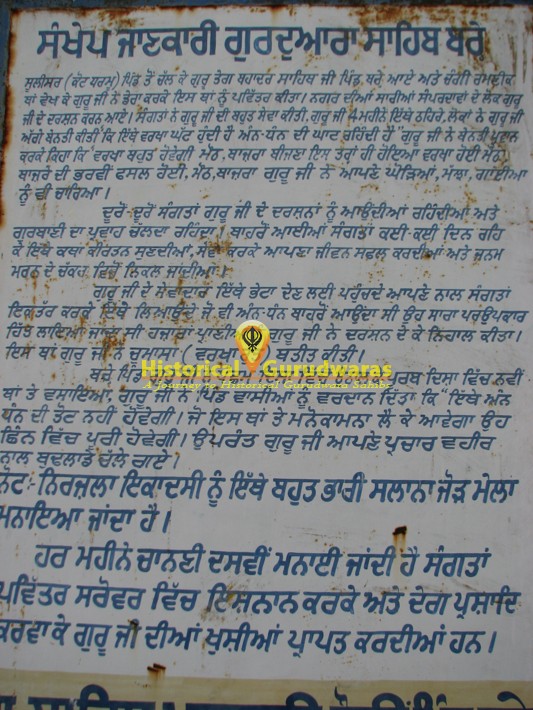 ਸੰਖੇਪ ਜਾਣਕਾਰੀ ਗੁਰਦੁਆਰਾ ਸਾਹਿਬ ਬਰੇ
ਸੂਲੀਸਰ (ਕੋਟ ਧਰਮੂ) ਪਿੰਡ ਤੋਂ ਚੱਲ ਕੇ ਗੁਰੂ ਤੇਗ ਬਹਾਦਰ ਸਾਹਿਬ ਜੀ ਪਿੰਡ ਬਰੇ ਆਏ ਅਤੇ ਚੰਗੀ ਰਮਣੀਕ
ਥਾਂ ਵੇਖ ਕੇ ਗੁਰੂ ਜੀ ਨੇ ਡੇਰਾ ਕਰਕੇ ਇਸ ਥਾਂ ਨੂੰ ਪਵਿੱਤਰ ਕੀਤਾ। ਨਗਰ ਦੀਆਂ ਸਾਰੀਆਂ ਸੰਪਰਦਾਵਾਂ ਦੇ ਲੋਕ ਗੁਰੂ
ਜੀ ਦੇ ਦਰਸ਼ਨ ਕਰਨ ਆਏ। ਸੰਗਤਾਂ ਨੇ ਗੁਰੂ ਜੀ ਦੀ ਬਹੁਤ ਸੇਵਾ ਕੀਤੀ, ਗੁਰੂ ਜੀ 4 ਮਹੀਨੇ ਇੱਥੇ ਠਹਿਰੇ, ਲੋਕਾਂ ਨੇ ਗੁਰੂ ਜੀ
ਅੱਗੇ ਬੇਨਤੀ ਕੀਤੀ ਕਿ ਇੱਥੇ ਵਰਖਾ ਘੱਟ ਹੁੰਦੀ ਹੈ ਅੰਨ-ਧੰਨ ਦੀ ਘਾਟ ਰਹਿੰਦੀ ਹੈ" ਗੁਰੂ ਜੀ ਨੇ ਬੇਨਤੀ ਪ੍ਰਵਾਨ
ਕਰਕੇ ਕਿਹਾ ਕਿ "ਵਰਖਾ ਬਹੁਤ ਹੋਵੇਗੀ ਮੋਠ, ਬਾਜ਼ਰਾ ਬੀਜਣਾ ਇਸ ਤਰ੍ਹਾਂ ਹੀ ਹੋਇਆ ਵਰਖਾ ਹੋਈ ਮੋਠ,
ਬਾਜ਼ਰੇ ਦੀ ਭਰਵੀਂ ਫਸਲ ਹੋਈ, ਮੋਠ, ਬਾਜ਼ਰਾ ਗੁਰੂ ਜੀ ਨੇ ਆਪਣੇ ਘੋੜਿਆਂ, ਗਾਈਆਂ
ਨੂੰ ਵੀ ਚਾਰਿਆ।
ਦੂਰੋਂ-ਦੂਰੋਂ ਸੰਗਤਾਂ ਗੁਰੂ ਜੀ ਦੇ ਦਰਸ਼ਨਾਂ ਨੂੰ ਆਉਂਦੀਆਂ ਰਹਿੰਦੀਆਂ ਅਤੇ
ਗੁਰਬਾਣੀ ਦਾ ਪ੍ਰਵਾਹ ਚੱਲਦਾ ਰਹਿੰਦਾ। ਬਾਹਰੋਂ ਆਈਆਂ ਸੰਗਤਾਂ ਕਈ-ਕਈ ਦਿਨ ਰਹਿ
ਕੇ ਇੱਥੇ ਕਥਾ ਕੀਰਤਨ ਸੁਣਦੀਆਂ, ਸੇਵਾ ਕਰਕੇ ਆਪਣਾ ਜੀਵਨ ਸਫਲ ਕਰਦੀਆਂ ਅਤੇ ਜਨਮ
ਮਰਨ ਦੇ ਚੱਕਰ ਵਿੱਚੋਂ ਨਿਕਲ ਜਾਂਦੀਆਂ।
ਗੁਰੂ ਜੀ ਦੇ ਸੇਵਾਦਾਰ ਇੱਥੇ ਭੇਟਾ ਦੇਣ ਲਈ ਪਹੁੰਚਦੇ ਆਪਣੇ ਨਾਲ ਸੰਗਤਾਂ
ਇਕੱਤਰ ਕਰਕੇ ਇੱਥੇ ਲਿਆਉਂਦੇ ਜੋ ਵੀ ਅੰਨ-ਧੰਨ ਬਾਹਰੋਂ ਆਉਂਦਾ ਸੀ ਉਹ ਸਾਰਾ ਪਰਉਪਕਾਰ
ਹਿੱਤ ਲਾਇਆ ਜਾਂਦਾ ਸੀ ਹਜ਼ਾਰਾਂ ਪ੍ਰਾਣੀਆਂ ਗੁਰੂ ਜੀ ਨੇ ਦਰਸ਼ਨ ਦੇ ਕੇ ਨਿਹਾਲ ਕੀਤਾ।
ਇਸ ਥਾਂ ਗੁਰੂ ਜੀ ਨੇ (ਵਰਖਾ ਬਤੀਤ ਕੀਤੀ।
Historical Gurudwaras
A Journey to Historical Gurudwara Sahibs
ਬਰੇ ਪਿੰਡ ਦਿਸ਼ਾ ਵਿੱਚ ਨਵੀਂ
ਥਾਂ ਤੇ ਵਸਾਇਆ, ਗੁਰੂ ਜੀ ਨੇ ਪਿੰਡ ਵਾਸੀਆਂ ਨੂੰ ਵਰਦਾਨ ਦਿੱਤਾ ਕਿ "ਇੱਥੇ ਅੰਨ
ਧੰਨ ਦੀ ਤੋਟ ਨਹੀਂ ਹੋਵੇਗੀ। ਜੋ ਇਸ ਥਾਂ ਤੇ ਮਨੋਕਾਮਨਾ ਲੈ ਕੇ ਆਵੇਗਾ ਉਹ
ਛਿੰਨ ਵਿੱਚ ਪੂਰੀ ਹੋਵੇਗੀ। ਉਪਰੰਤ ਗੁਰੂ ਜੀ ਆਪਣੇ ਪ੍ਰਚਾਰ ਵਹੀਰ
ਨਾਲ ਬੁਢਲਾਡੇ ਚੱਲੇ ਗਏ।
ਨੋਟ:- ਨਿਰਜ਼ਲਾ ਇਕਾਦਸੀ ਨੂੰ ਇੱਥੇ ਬਹੁਤ ਭਾਰੀ ਸਲਾਨਾ ਜੋੜ ਮੇਲਾ
ਮਨਾਇਆ ਜਾਂਦਾ ਹੈ।
ਹਰ ਮਹੀਨੇ ਚਾਨਣੀ ਦਸਵੀਂ ਮਨਾਈ ਜਾਂਦੀ ਹੈ ਸੰਗਤਾਂ
ਪਵਿੱਤਰ ਸਰੋਵਰ ਵਿੱਚ ਇਸ਼ਨਾਨ ਕਰਕੇ ਅਤੇ ਦੇਗ ਪ੍ਰਸ਼ਾਦਿ
ਕਰਵਾ ਕੇ ਗੁਰੂ ਜੀ ਦੀਆਂ ਖੁਸ਼ੀਆਂ ਪ੍ਰਾਪਤ ਕਰਦੀਆਂ ਹਨ।